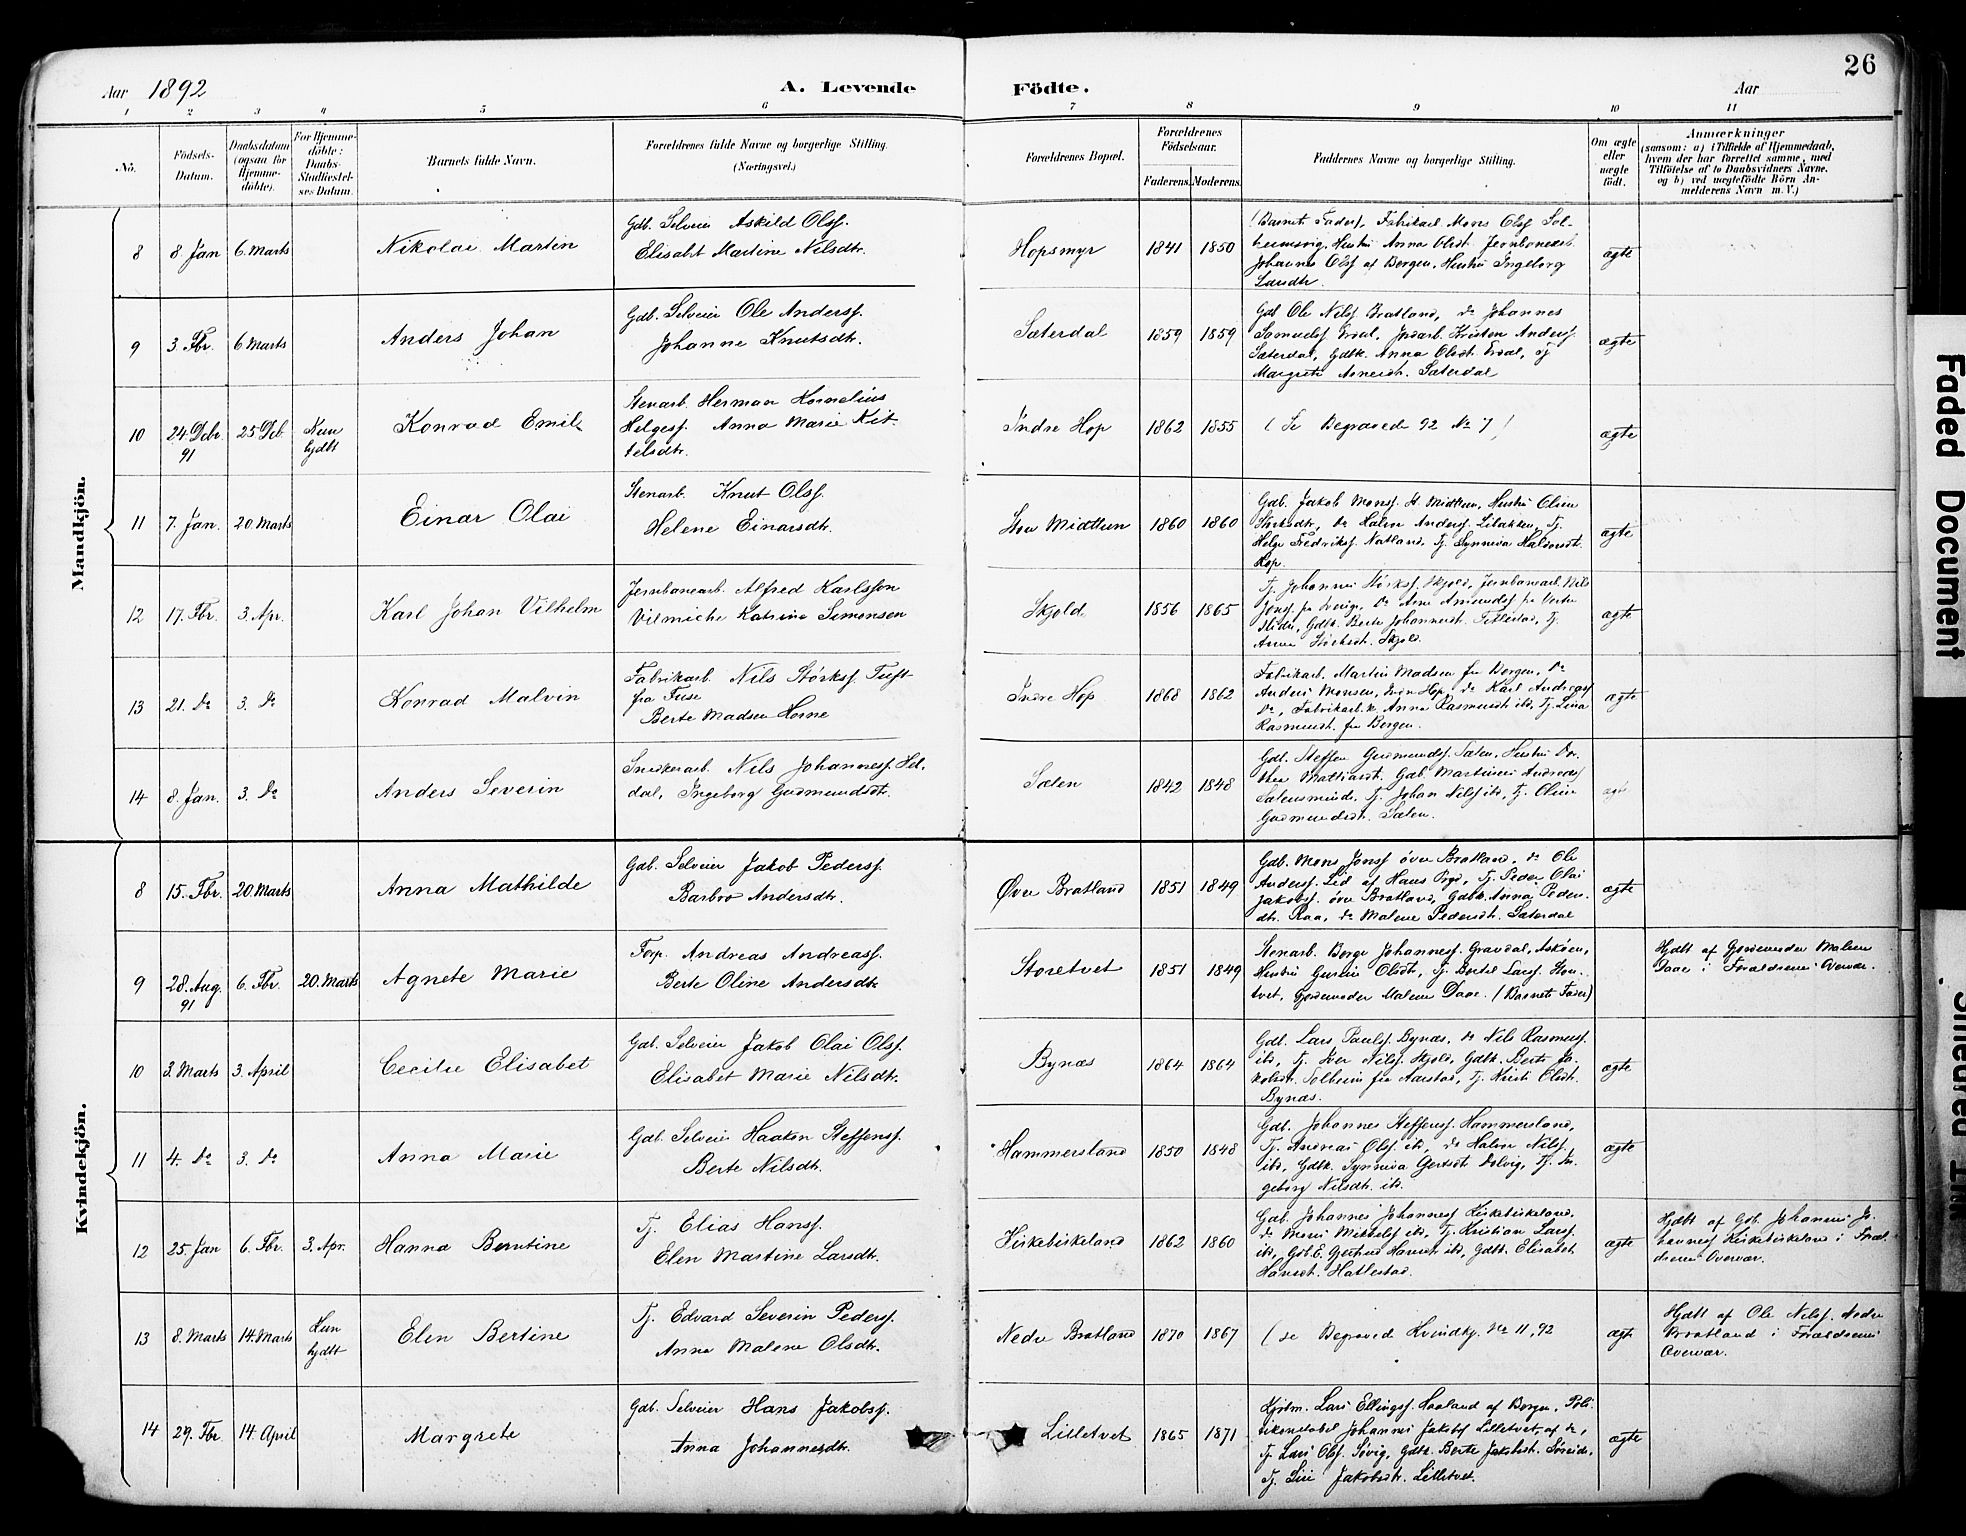 26
Aar 1892 A. Levende Födte. Aar
1 2 3 4 5 6 7 8 9 10 11
No.
Födsels-
Datum.
Daabsdatum
(ogsaa for
Hjemme-
döbte).
For Hjemme-
döbte:
Daabs-
Stadfæstel-
ses Datum.
Barnets fulde Navn.
Forældrenes fulde Navne og borgerlige Stilling.
(Næringsvei.)
Forældrenes Bopæl.
Forældrenes
Födselsaar.
Faderens. Moderens.
Faddernes Navne og borgerlige Stilling.
Om ægte
eller
uægte
födt.
Anmærkninger
(saasom: a) i Tilfælde af Hjemmedaab,
hvem der har forrettet samme, med
Tilföielse af to Daabsvidners Navne.
og b) ved uægtefödte Börn An-
melderens Navn m. V.)
Mandkjön.
8 8 Jan 6 Marts Nikolai Martin
Gdb. Selveier Askild Olsf.
Elisabt Martine Nilsdtr.
Hopsmyr 1841 1850
(Barnets Fader), Fabrikarb Mons Olsf Sol-
heimsvig, Hustru Anna Olsdt. Jernbanearb.
Johannes Olsf af Bergen, Hustru Ingeborg
Larsdtr.
ægte
9 3. Fbr. 6 Marts Anders Johan
Gdb. Selveier Ole Andersf.
Johanne Knutsdtr.
Sæterdal 1859 1859
Gdb Ole Nilsf Bratland, do Johannes
Samuelsf Erdal, Jordarb. Kristen Andersf
Sæterdal, Gdbk. Anna Olsdt. Erdal, og
Margrete Arnesdt. Sæterdal
ægte
10 24. Debr. 91 25 Deb. Kun hjdbt Konrad Emil
Stenarb. Herman Kornelius
Helgesf. Anna Marie Kit-
telsdtr.
Indre Hop 1862 1855
(Se Begravede 92 No 7)
ægte
11 7. Jan. 20 Marts Einar Olai
Stenarb. Knut Olsf.
Helene Einarsdtr.
Store Midttun 1860 1860
Gdb. Jakob Monsf. St. Midttun, Hustru Oline
Störksdtr, do Halvor Andersf. Libakken, Tj.
Helge Fredriksf. Natland, Tj. Synneva Haldorsdt.
Hop.
ægte
12 17. Fbr. 3. Apr. Karl Johan Vilhelm
Jernbanearb. Alfred Karlsson
Vilmiche Katrine Simonsen
Skjold 1856 1865
Tj. Johannes Störksf. Skjold, Jernbanearb. Nils
Jonsf. fra Sverige, do Arne Amundsf fra Vestre
Slidre, Gdbk. Berte Johannesdt. Titlestad, Tj.
Anna Störksdt. Skjold.
ægte
13 21. Do 3. Do Konrad Malvin
Fabrikarb. Nils Störksf. Tuft
fra Fuse
Berte Madsen Horne
Indre Hop 1868 1862
Fabrikarb. Martin Madsen fra Bergen, Do
Anders Monsen, Indre Hop, do Karl Andreasf
Do, Fabrikarb.k. Anna Rasmusdt ibd, Tj. Lina
Rasmusdt. fra Bergen.
ægte
14 8. Jan. 3. Do Anders Severin
Snedkerarb. Nils Johannesf. Hel-
dal, Ingeborg Gudmundsdt.
Sælen 1842 1848
Gdb. Steffen Gudmundsf. Sælen, Hustru Do-
thea Mathiasdt. Gdb. Martinus Andreasf
Sælensminde, Tj. Johan Nilsf ibd, Tj. Oline
Gudmundsdt. Sælen.
ægte
Kvindekjön.
8 15. Fbr. 20 Marts Anna Mathilde
Gdb. Selveier Jakob Pedersf.
Barbro Andersdtr.
Øvre Bratland 1851 1849
Gdb. Mons Jonsf övre Bratland, do Ole
Andersf. Lid af Haus Prgd, Tj. Peder Olai
Jakobsf. övre Bratland, Gdbk. Anna Peders-
dtr. Raa, do Malene Pedersdt. Sæterdal
ægte
9 28. Aug. 91 6. Fbr. 20. Marts Agnete Marie
Forp. Andreas Andreasf.
Berte Oline Andersdtr
Storetvet 1851 1849
Stenarb. Börge Johannesf. Gravdal, Asköen,
Hustru Gurine Olsdt, Tj. Bertel Larsf. Stor-
tvet, Gjordemoder Malene Daae. (Barnets Fader)
Hjdbt af Gjordemoder Malene
Daae i Forældrenes Overvær.
10 3. Marts 3. April Cecilie Elisabet
Gdb. Selveier Jakob Olai Olsf.
Elisabet Marie Nilsdtr.
Bynæs 1864 1864
Gdb. Lars Paulsf. Bynæs, do Nils Rasmusf.
ibd, Tj. Iver Nilsf. Skjold, Gdbk. Berte Ja-
kobsdt. Solheim fra Aarstad, Tj. Kirsti Olsdt.
Bynæs.
ægte
11 4. Do 3. Do Anna Marie
Gdb. Selveier Haakon Steffensf.
Berte Nilsdtr.
Hammersland 1850 1848
Gdb. Johannes Steffensf. Hammersland,
Tj. Andreas Olsf ibd, do Halvor Nilsf.
ibd, Gdbk. Synneva Gertsdt Dolvig, Tj. In-
geborg Nilsdtr. ibd.
ægte
12 25. Jan 6. Fbr. 3. Apr. Hanna Berntine
Tj. Elias Hansf.
Elen Martine Larsdtr.
Kirkebirkeland 1862 1860
Gdb. Johannes Johannesf Kirkebirkeland,
do Mons Mikkelsf ibd, Tj. Kristian Larsf.
ibd, Gdb.E. Gertrud Hansdt ibd, Gdbk. Elisabet
Hansdt. Hatlestad.
ægte
Hjdbt af Gdb. Johannes Jo-
hannesf Kirkebirkeland i Foræl-
drenes Overvær.
13 8. Marts 14. Marts Kun hjdbt Elen Bertine
Tj. Edvard Severin Pedersf.
Anna Malene Olsdtr.
Nedre Bratland 1870 1867
(se Begravede Kvindkj. No 11, 92
ægte
Hjdbt af Ole Nilsf. Nedre
Bratland i Forældrenes
Overvær.
14 29. Fbr. 14. April Margrete
Gdb. Selveier Hans Jakobsf.
Anna Johannesdtr.
Lilletvet 1865 1871
Kjöbm. Lars Ellingsf. Haaland af Bergen, Poli-
tikonstabel Johannes Jakobsf Lilletvet, af do,
Tj. Lars Olsf. Sövig, Gdbk. Berte Jakobsdt. Söreide,
Tj. Siri Jakobsdtr. Lilletvet.
ægte
Faded Document
Smeared Ink